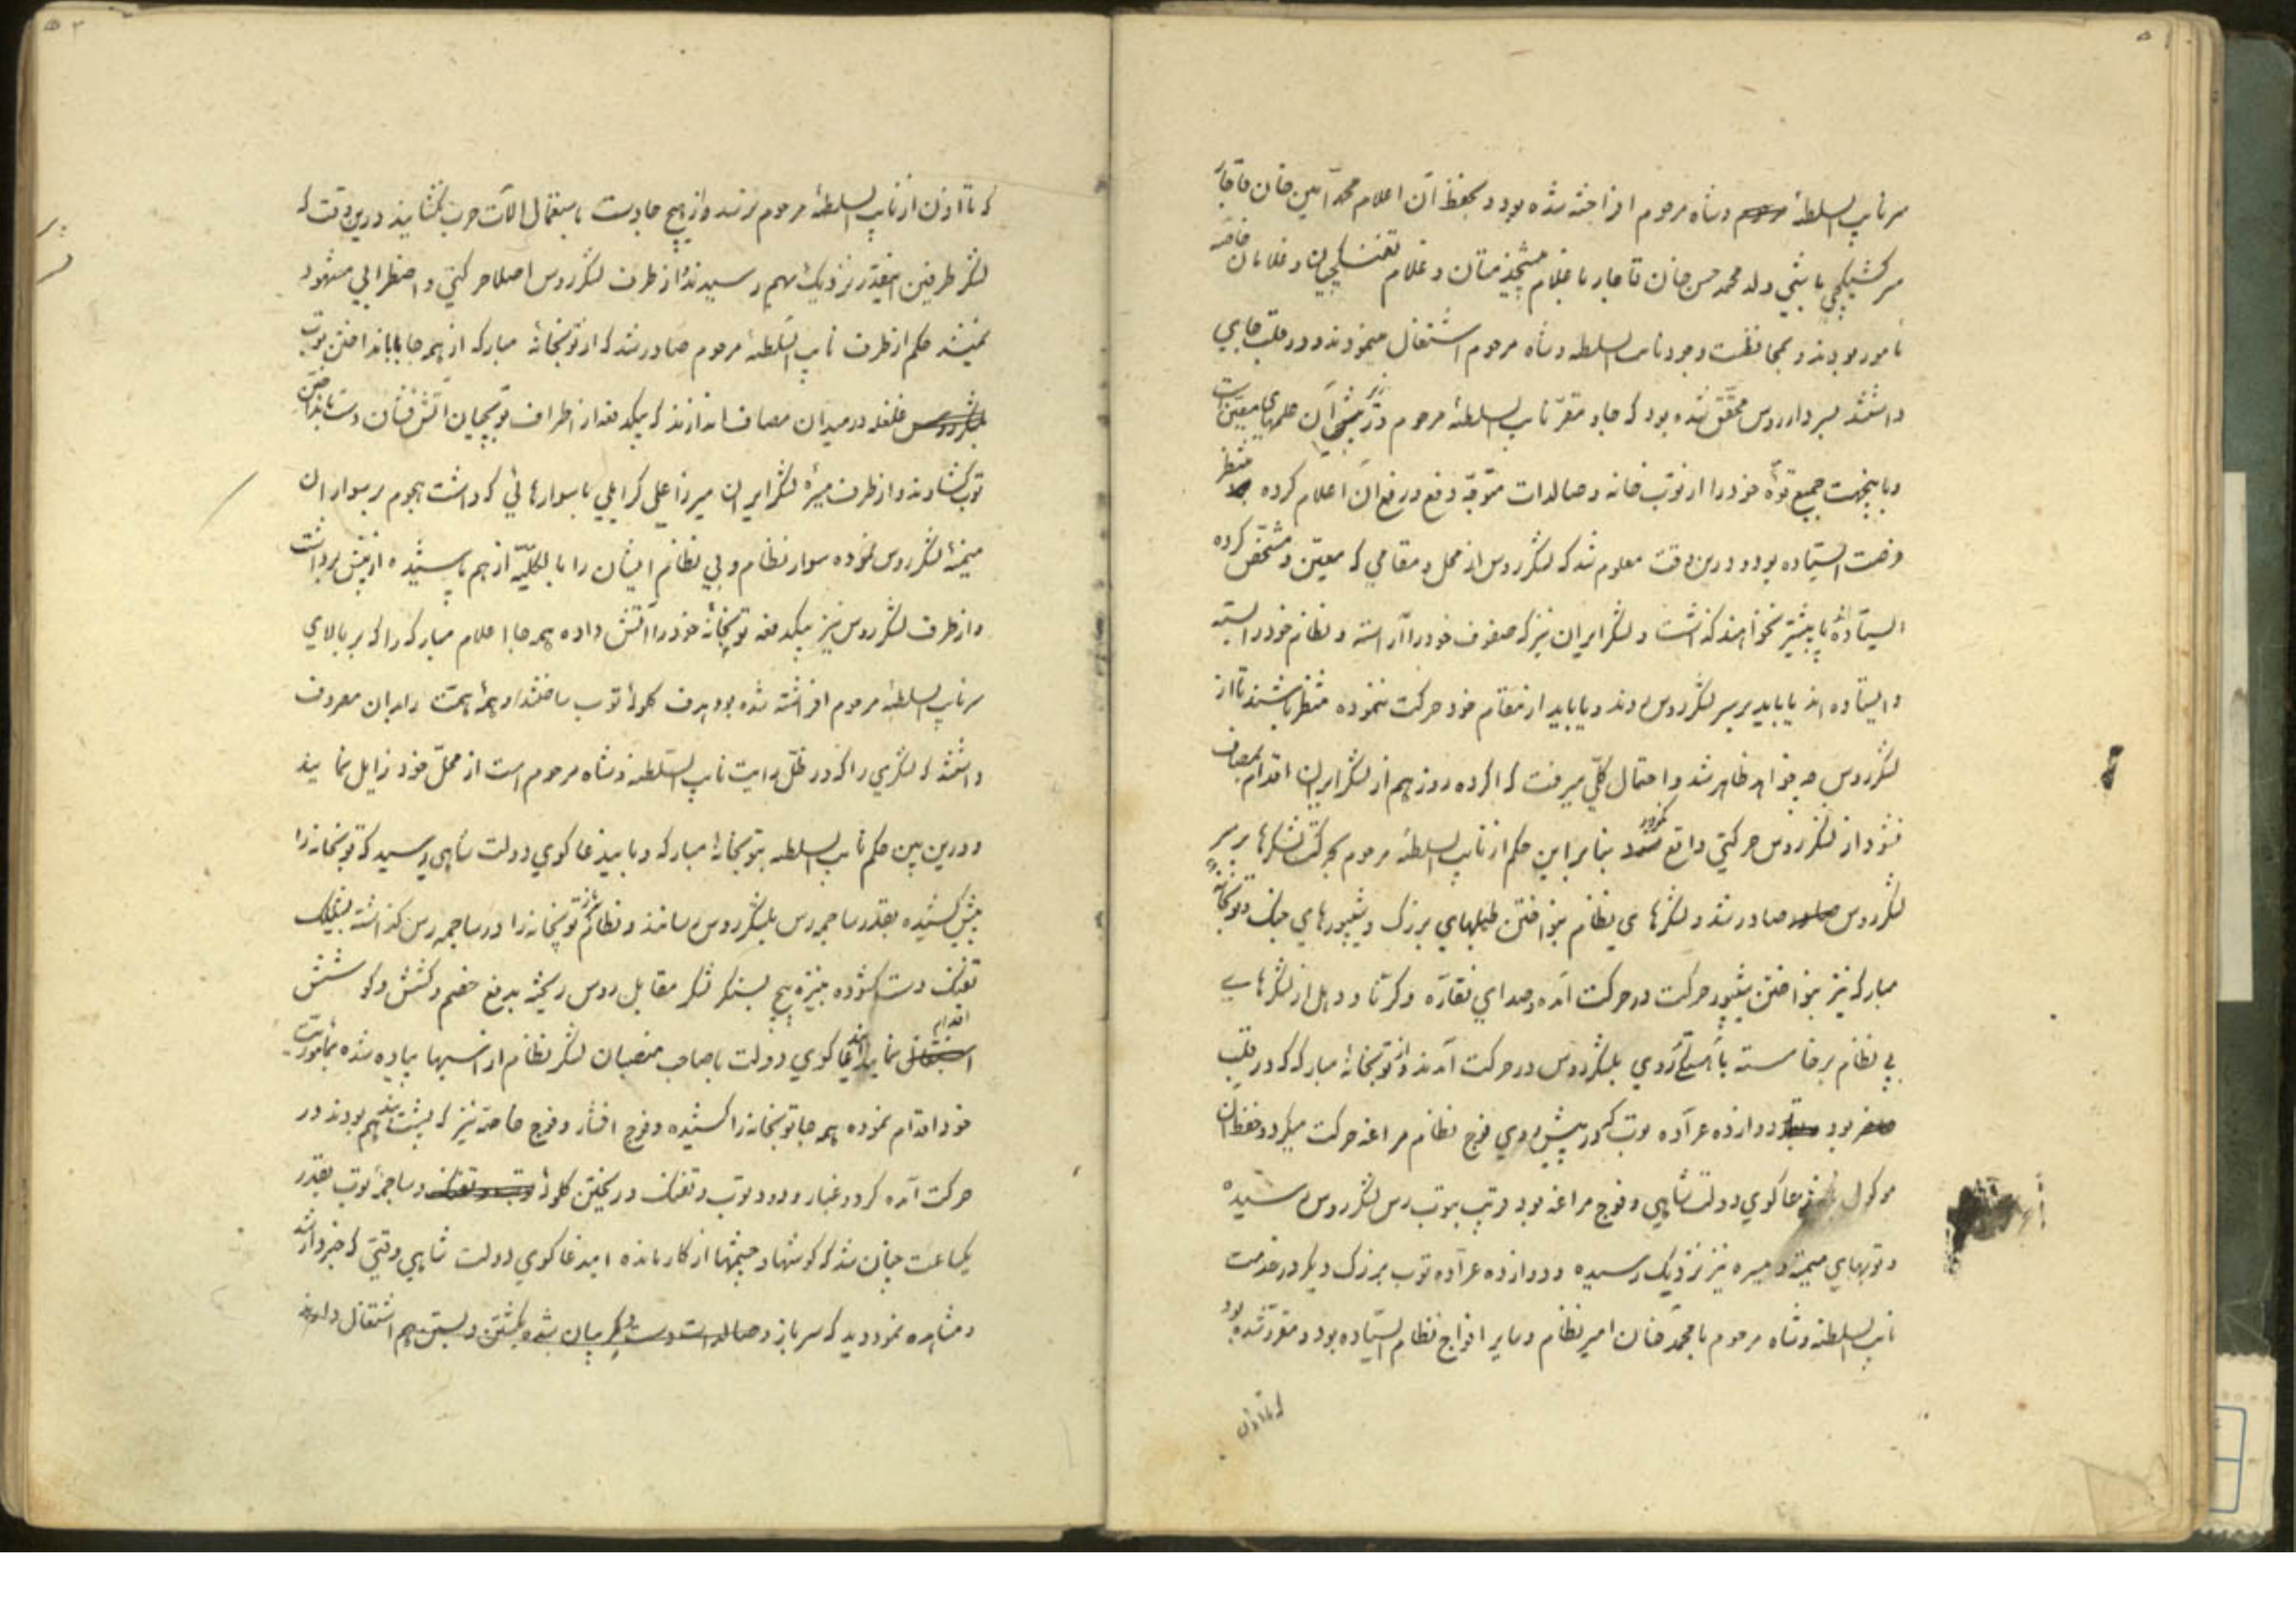 سر نایب السلطنهٔ مرحوم و شاه مرحوم افراخته شده بود و بحفظ آن اعلام محمد امین خان قاجار
سرکشیکچی باشی ولد محمد حسن خان قاجار با غلام پیشخدمتان و غلام تفنگچیان و غلامان خاصه
مامور بودند و بمحافظت وجود نایب السلطنه و شاه مرحوم اشتغال مینمودند و در قلب جای
داشتند بسردار روس محقق شده بود که جا و مقر نایب السلطنهٔ مرحوم در زیر آن علمهای معین است
و باینجهت جمیع قوهٔ خود را از توپ خانه و صالدات متوجه دفع و رفع آن اعلام کرده منتظر
فرصت ایستاده بود و درین وقت معلوم شد که لشکر روس از محل و مقامی که معین و مشخص کرده
ایستاده اند پا پیشتر نخواهند گذاشت و لشکر ایران نیز که صفوف خود را آراسته و نظام خود را بسته
و ایستاده اند یا باید بر سر لشکر روس روند و یا باید از مقام خود حرکت ننموده منتظر باشند تا از
لشکر روس چه خواهد ظاهر شد و احتمال کلی میرفت که اگر ده روز هم از لشکر ایران اقدام بمصاف
نشود از لشکر روس حرکتی واقع نگردد بنابراین حکم از نایب السلطنهٔ مرحوم بحرکت لشکرها بر سر
لشکر روس صادر شد و لشکرهای نظام بنواختن طبلهای بزرگ و شیپورهای جنگ و توپخانهٔ
مبارکه نیز بنواختن شیپور حرکت در حرکت آمده و صدای نقاره و کرنا و دهل از لشکرهای
بی نظام برخاسته با آهستگی روی بلشکر روس در حرکت آمدند و از توپخانهٔ مبارکه که در قلب
بود دوازده عراده توپ که در پیش روی فوج نظام مراغه حرکت میکرد و حفظ آن
موکول بدعاگوی دولت شاهی و فوج مراغه بود توپ بتوپ رس لشکر روس رسیده
و توپهای میمنه و میسره نیز نزدیک رسیده و دوازده عراده توپ بزرگ دیگر در خدمت
نایب السلطنه و شاه مرحوم با محمد خان امیر نظام و سایر افواج نظام ایستاده بود و مقرر شده بود
که تا اذن
که تا اذن از نایب السلطنهٔ مرحوم نرسد و از هیچ جا دست باستعمال آلات حرب نگشایند درین وقت که
لشکر طرفین اینقدر نزدیک بهم رسیدند و از طرف لشکر روس اصلا حرکتی و اضطرابی مشهود
نمیشد حکم از طرف نایب السلطنهٔ مرحوم صادر شد که از توپخانهٔ مبارکه از همه جا با انداختن توپ
غلغله در میدان مصاف اندازند که بیکدفعه از اطراف توپچیان آتش فشان دست بانداختن
توپ گشادند و از طرف میسرهٔ لشکر ایران میرزا علی گرایلی با سوارهائی که داشت هجوم بر سواران
میمنهٔ لشکر روس نموده سوار نظام و بی نظام ایشان را بالکلیه از هم پاشیده از پیش برداشت
و از طرف لشکر روس نیز بیکدفعه توپخانهٔ خود را آتش داده همه جا اعلام مبارکه را که بر بالای
سر نایب السلطنهٔ مرحوم افراشته شده بود هدف گلولهٔ توپ ساختند و همهٔ همت را بدان معروف
داشتند که لشکری را که در ظل رایت نایب السلطنه و شاه مرحوم است از محل خود زایل نمایند
و درین بین حکم نایب السلطنه بتوپخانهٔ مبارکه و باین دعاگوی دولت شاهی رسید که توپخانه را
پیش کشیده بقدر ساچمه رس بلشکر روس رسانند و نظام توپخانه را در ساچمه رس گذاشته بشلیک
تفنگ دست گشوده بنیزه پیچ بسنگر لشکر مقابل روس ریخته بدفع خصم و کشش و کوشش
اقدام نمایند دعاگوی دولت با صاحب منصبان لشکر نظام از اسبها پیاده شده بمأموریت
خود اقدام نموده همه جا توپخانه را کشیده و فوج افشار و فوج خاصه نیز که پشت بند هم بودند در
حرکت آمده گرد و غبار و دود توپ و تفنگ در ریختن گلوله و ساچمهٔ توپ بقدر
یکساعت چنان شد که گوشها و چشمها از کار مانده این دعاگوی دولت شاهی وقتی که خبردار شد
و مشاهده نمود دید که سرباز و صالدات دست و گریبان شده بکشتن و بستن هم اشتغال دارند